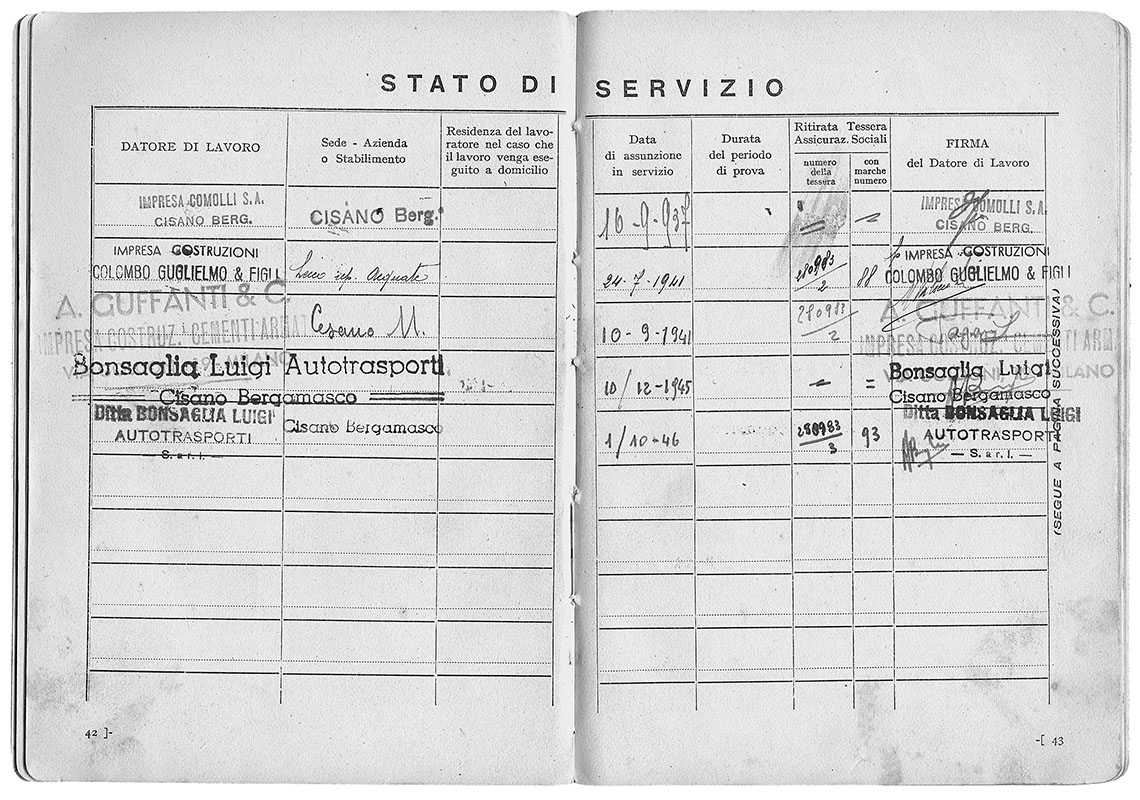 STATO DI SERVIZIO
DATORE DI LAVORO
Sede - Azienda
o Stabilimento
Residenza del lavo-
ratore nel caso che
il lavoro venga ese-
guito a domicilio
Data
di assunzione
in servizio
Durata
del periodo
di prova
Ritirata Tessera
Assicuraz. Sociali
numero
della
tessera
con
marche
numero
FIRMA
del Datore di Lavoro
IMPRESA COMOLLI S.A.
CISANO BERG.
CISANO Berg.
16-9-937
IMPRESA COMOLLI S.A.
CISANO BERG.
IMPRESA COSTRUZIONI
COLOMBO GUGLIELMO & FIGLI
24-7-1941
280983
2
88
IMPRESA COSTRUZIONI
COLOMBO GUGLIELMO & FIGLI
A. GUFFANTI & C.
IMPRESA COSTRUZ. CEMENTI ARMAT
MILANO
Cesano M.
10-9-1941
280983
2
A. GUFFANTI & C.
IMPRESA COSTRUZ. CEMENTI ARMA
MILANO
Bonsaglia Luigi Autotrasporti
Cisano Bergamasco
10/12-1945
=
Bonsaglia Luigi
Cisano Bergamasco
Ditta BONSAGLIA LUIGI
AUTOTRASPORTI
— S.a r.l. —
Cisano Bergamasco
1/10-46
280983
3
93
Ditta BONSAGLIA LUIGI
AUTOTRASPORTI
— S.a r.l. —
(SEGUE A PAGINA SUCCESSIVA)
42 ]-
-[ 43